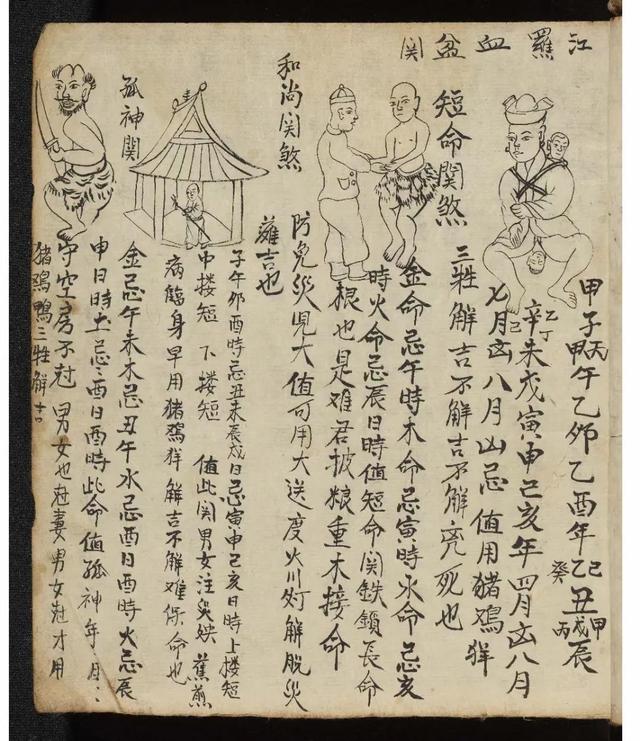 江羅血盆関
甲子丙甲午乙夘乙酉年己乙癸丑甲戊丙辰
辛未乙丁戊寅申己亥年四月凶八月
七月凶八月山忌值用猪鴉羊
短命関煞
三牲解吉不解吉不解売死也
金命忌午時木命忌寅時水命忌亥
時火命忌辰日時值短命関鉄鎖長命
根也是难君披粮重木接命
和尚関煞
防免災児大值可用大送度火川灯解脱災
薙吉也
子午夘酉時忌丑未辰戌日忌寅申己亥日時上楼短
中楼短 下楼短 值此関男女注災殃 蕉煎
病臨身早用猪鴉羊解吉不解难保命也
孤神関
金忌午未木忌丑午水忌酉日酉時火忌辰
申日時土忌酉日酉時此命值孤神年月
守空房不对男女也尅妻男女尅才用
猪鴉鴨三牲解吉